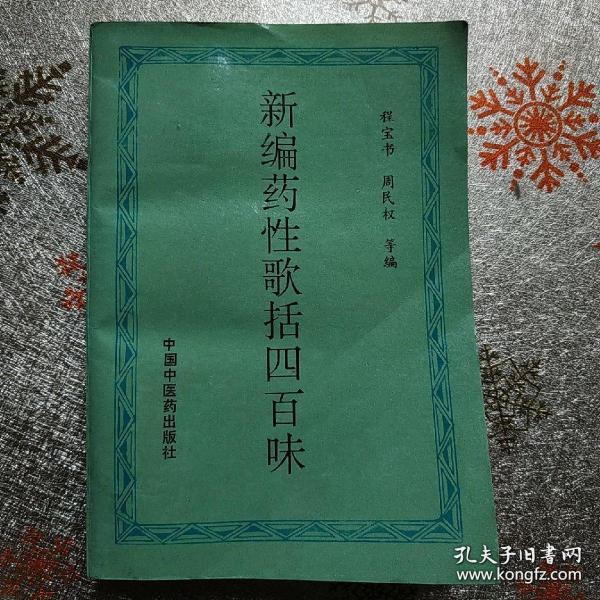 程宝书 周民权 等编
新编药性歌括四百味
中国中医药出版社
孔夫子旧書网
www.kongfz.com